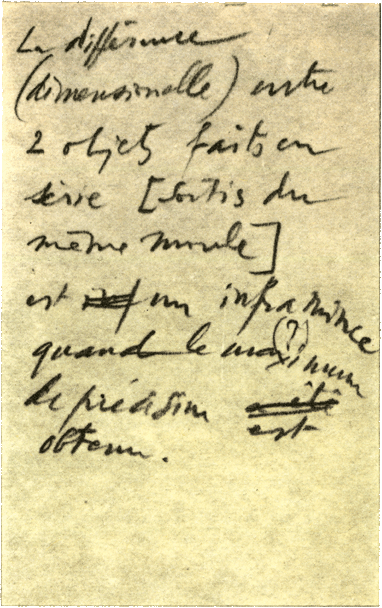 La différence
(dimensionelle) entre
2 objets faits en
série [sortis du
même moule]
est un infra mince
quand le maximum (?)
de précision a été
est
obtenu.